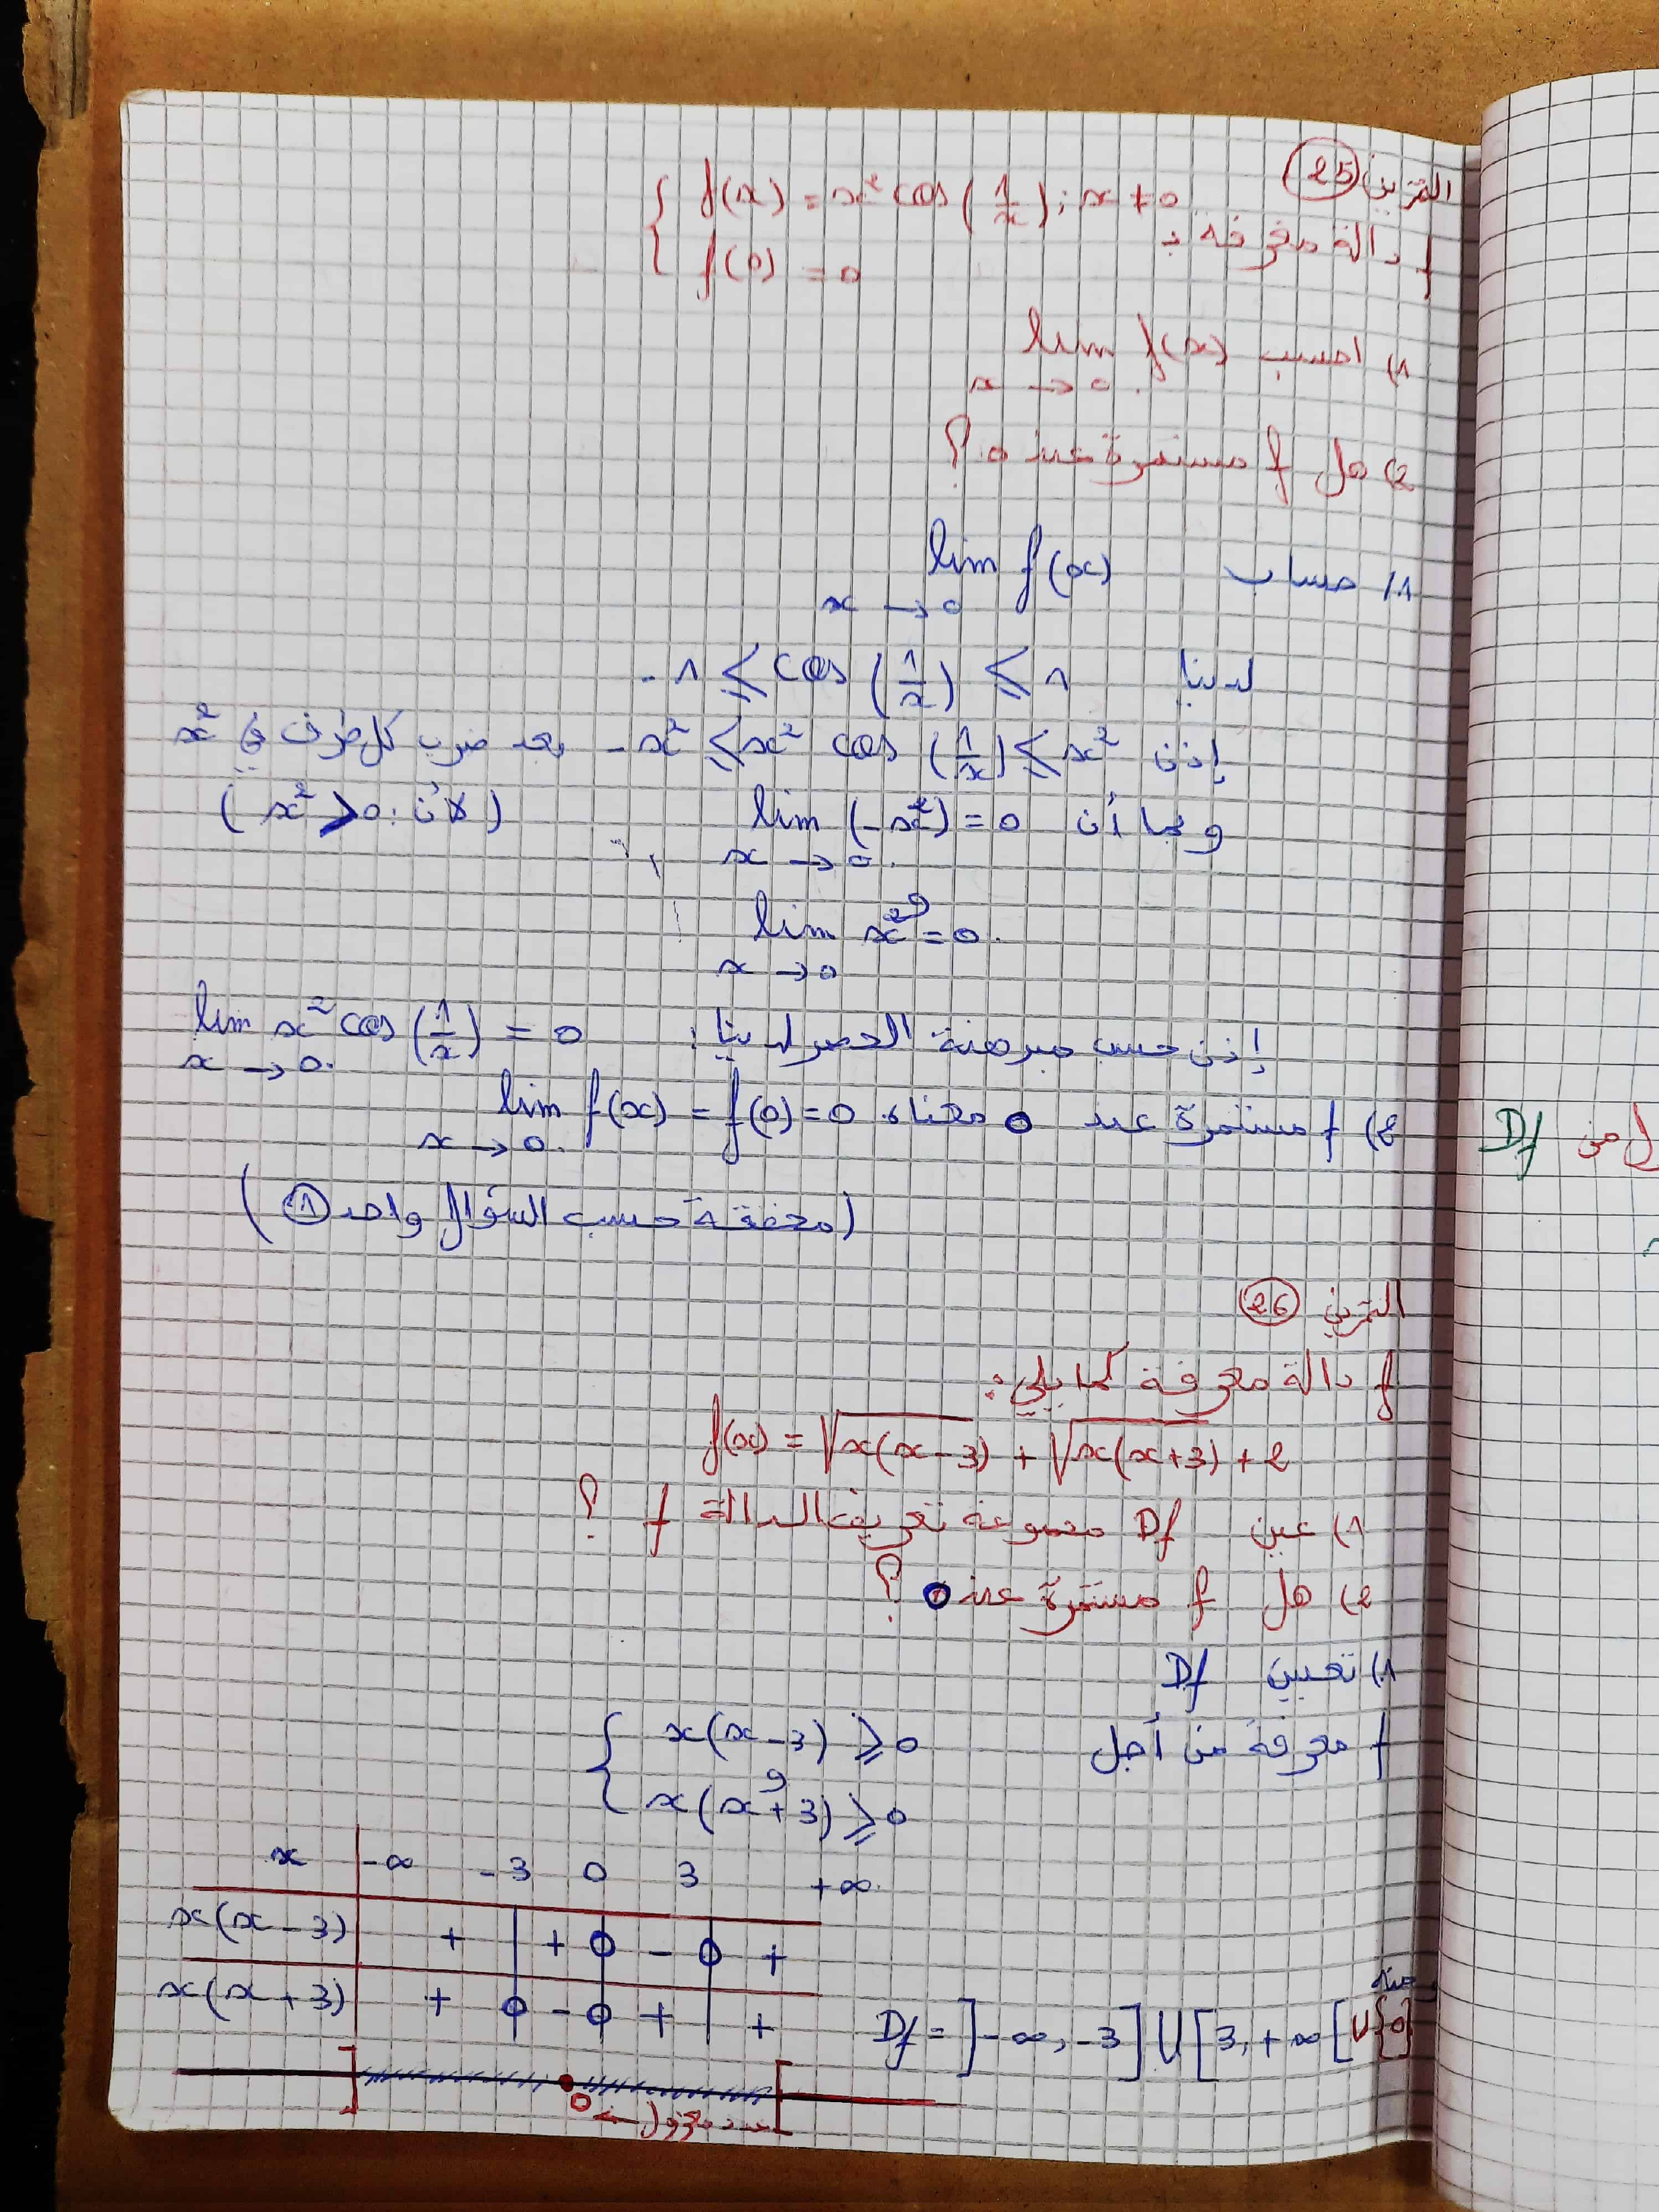 التمرين 25
f دالة معرفة بـ: { f(x) = x² cos(1/x) ; x ≠ 0
f(0) = 0
1) احسب lim f(x)
x → 0
2) هل f مستمرة عند 0 ؟
1/ حساب lim f(x)
x → 0
لدينا -1 ≤ cos(1/x) ≤ 1
إذن -x² ≤ x² cos(1/x) ≤ x² بعد ضرب كل طرف في x²
(لأن: x² > 0)
وبما أن lim (-x²) = 0
x → 0
و
lim x² = 0
x → 0
إذن حسب مبرهنة الحصر لدينا: lim x² cos(1/x) = 0
x → 0
2) f مستمرة عند 0 معناه lim f(x) = f(0) = 0
x → 0
(محققة حسب السؤال واحد 1)
التمرين 26
f دالة معرفة كما يلي:
f(x) = √x(x-3) + √x(x+3) + 2
1) عين Df مجموعة تعريف الدالة f ؟
2) هل f مستمرة عند 0 ؟
1) تعيين Df
f معرفة من أجل { x(x-3) ≥ 0
و
x(x+3) ≥ 0
x -∞ -3 0 3 +∞
x(x-3) + + 0 - 0 +
x(x+3) + 0 - 0 + +
ومنه
Df = ]-∞, -3] U [3, +∞[ U {0}
0 ← عدد معزول
ل من Df